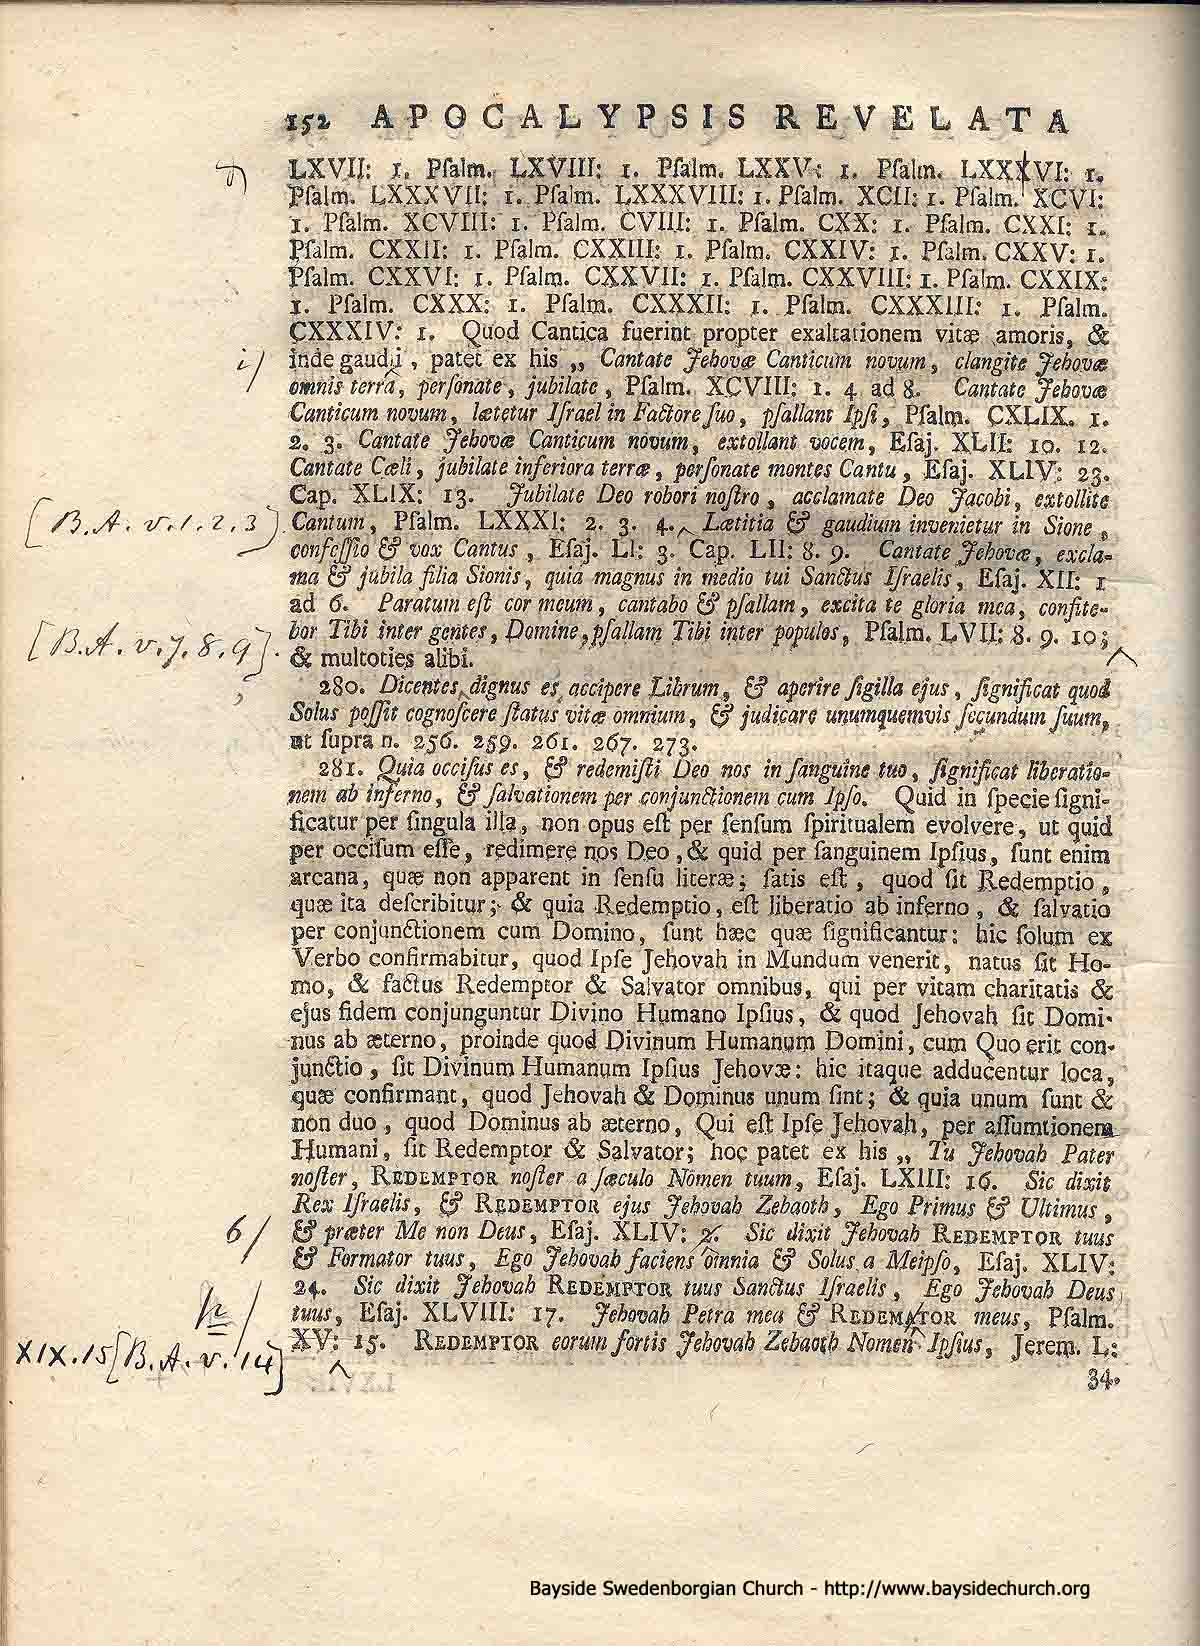 152 APOCALYPSIS REVELATA
LXVII: 1. Pſalm. LXVIII: 1. Pſalm. LXXV: 1. Pſalm. LXXXVI: 1.
Pſalm. LXXXVII: 1. Pſalm. LXXXVIII: 1. Pſalm. XCII: 1. Pſalm. XCVI:
1. Pſalm. XCVIII: 1. Pſalm. CVIII: 1. Pſalm. CXX: 1. Pſalm. CXXI: 1.
Pſalm. CXXII: 1. Pſalm. CXXIII: 1. Pſalm. CXXIV: 1. Pſalm. CXXV: 1.
Pſalm. CXXVI: 1. Pſalm. CXXVII: 1. Pſalm. CXXVIII: 1. Pſalm. CXXIX:
1. Pſalm. CXXX: 1. Pſalm. CXXXII: 1. Pſalm. CXXXIII: 1. Pſalm.
CXXXIV: 1. Quod Cantica fuerint propter exaltationem vitæ amoris, &
i/ inde gaudii, patet ex his „ Cantate Jehovæ Canticum novum, clangite Jehovæ
omnis terra, perſonate, jubilate, Pſalm. XCVIII: 1. 4 ad 8. Cantate Jehovæ
Canticum novum, lætetur Iſrael in Factore ſuo, pſallant Ipſi, Pſalm. CXLIX. 1.
2. 3. Cantate Jehovæ Canticum novum, extollant vocem, Eſaj. XLII: 10. 12.
Cantate Cæli, jubilate inferiora terræ, perſonate montes Cantu, Eſaj. XLIV: 23.
Cap. XLIX: 13. Jubilate Deo robori noſtro, acclamate Deo Jacobi, extollite
[B.A. v. 1. 2. 3] Cantum, Pſalm. LXXXI: 2. 3. 4. Lætitia & gaudium invenietur in Sione,
confeſſio & vox Cantus, Eſaj. LI: 3. Cap. LII: 8. 9. Cantate Jehovæ, excla-
ma & jubila filia Sionis, quia magnus in medio tui Sanctus Iſraelis, Eſaj. XII: 1
ad 6. Paratum eſt cor meum, cantabo & pſallam, excita te gloria mea, confite-
[B.A. v. 7. 8. 9]. bor Tibi inter gentes, Domine, pſallam Tibi inter populos, Pſalm. LVII: 8. 9. 10;
& multoties alibi.
280. Dicentes dignus es accipere Librum, & aperire ſigilla ejus, ſignificat quod
Solus poſſit cognoſcere ſtatus vitæ omnium, & judicare unumquemvis ſecundum ſuum,
ut ſupra n. 256. 259. 261. 267. 273.
281. Quia occiſus es, & redemiſti Deo nos in ſanguine tuo, ſignificat liberatio-
nem ab inferno, & ſalvationem per conjunctionem cum Ipſo. Quid in ſpecie ſigni-
ficatur per ſingula illa, non opus eſt per ſenſum ſpiritualem evolvere, ut quid
per occiſum eſſe, redimere nos Deo, & quid per ſanguinem Ipſius, ſunt enim
arcana, quæ non apparent in ſenſu literæ; ſatis eſt, quod ſit Redemptio,
quæ ita deſcribitur; & quia Redemptio, eſt liberatio ab inferno, & ſalvatio
per conjunctionem cum Domino, ſunt hæc quæ ſignificantur: hic ſolum ex
Verbo confirmabitur, quod Ipſe Jehovah in Mundum venerit, natus ſit Ho-
mo, & factus Redemptor & Salvator omnibus, qui per vitam charitatis &
ejus fidem conjunguntur Divino Humano Ipſius, & quod Jehovah ſit Domi-
nus ab æterno, proinde quod Divinum Humanum Domini, cum Quo erit con-
junctio, ſit Divinum Humanum Ipſius Jehovæ: hic itaque adducentur loca,
quæ confirmant, quod Jehovah & Dominus unum ſint; & quia unum ſunt &
non duo, quod Dominus ab æterno, Qui eſt Ipſe Jehovah, per aſſumtionem
Humani, ſit Redemptor & Salvator; hoc patet ex his „ Tu Jehovah Pater
noſter, REDEMPTOR noſter a ſæculo Nomen tuum, Eſaj. LXIII: 16. Sic dixit
Rex Iſraelis, & REDEMPTOR ejus Jehovah Zebaoth, Ego Primus & Ultimus,
6/ & præter Me non Deus, Eſaj. XLIV: Sic dixit Jehovah REDEMPTOR tuus
& Formator tuus, Ego Jehovah faciens omnia & Solus a Meipſo, Eſaj. XLIV:
24. Sic dixit Jehovah REDEMPTOR tuus Sanctus Iſraelis, Ego Jehovah Deus
tuus, Eſaj. XLVIII: 17. Jehovah Petra mea & REDEMATOR meus, Pſalm.
XIX. 15 [B.A. v. 14] XV: 15. REDEMPTOR eorum fortis Jehovah Zebaoth Nomen Ipſius, Jerem. L:
34.
Bayside Swedenborgian Church - http://www.baysidechurch.org